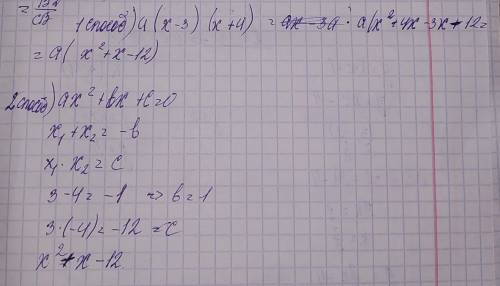 = 13π / CB
1 способ) a (x-3) (x+4) = ax - 3a · a(x²+4x-3x-12=
= a( x²+x-12)
2 способ) ax²+bx+c=0
x₁+x₂=-b
x₁·x₂=c
3-4=-1 => b=1
3·(-4)=-12=c
x²+x-12